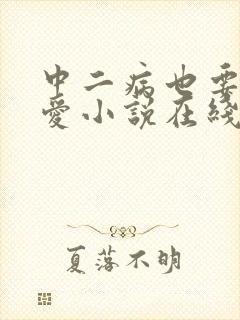 中二病也要
爱小說在綫
夏落不明